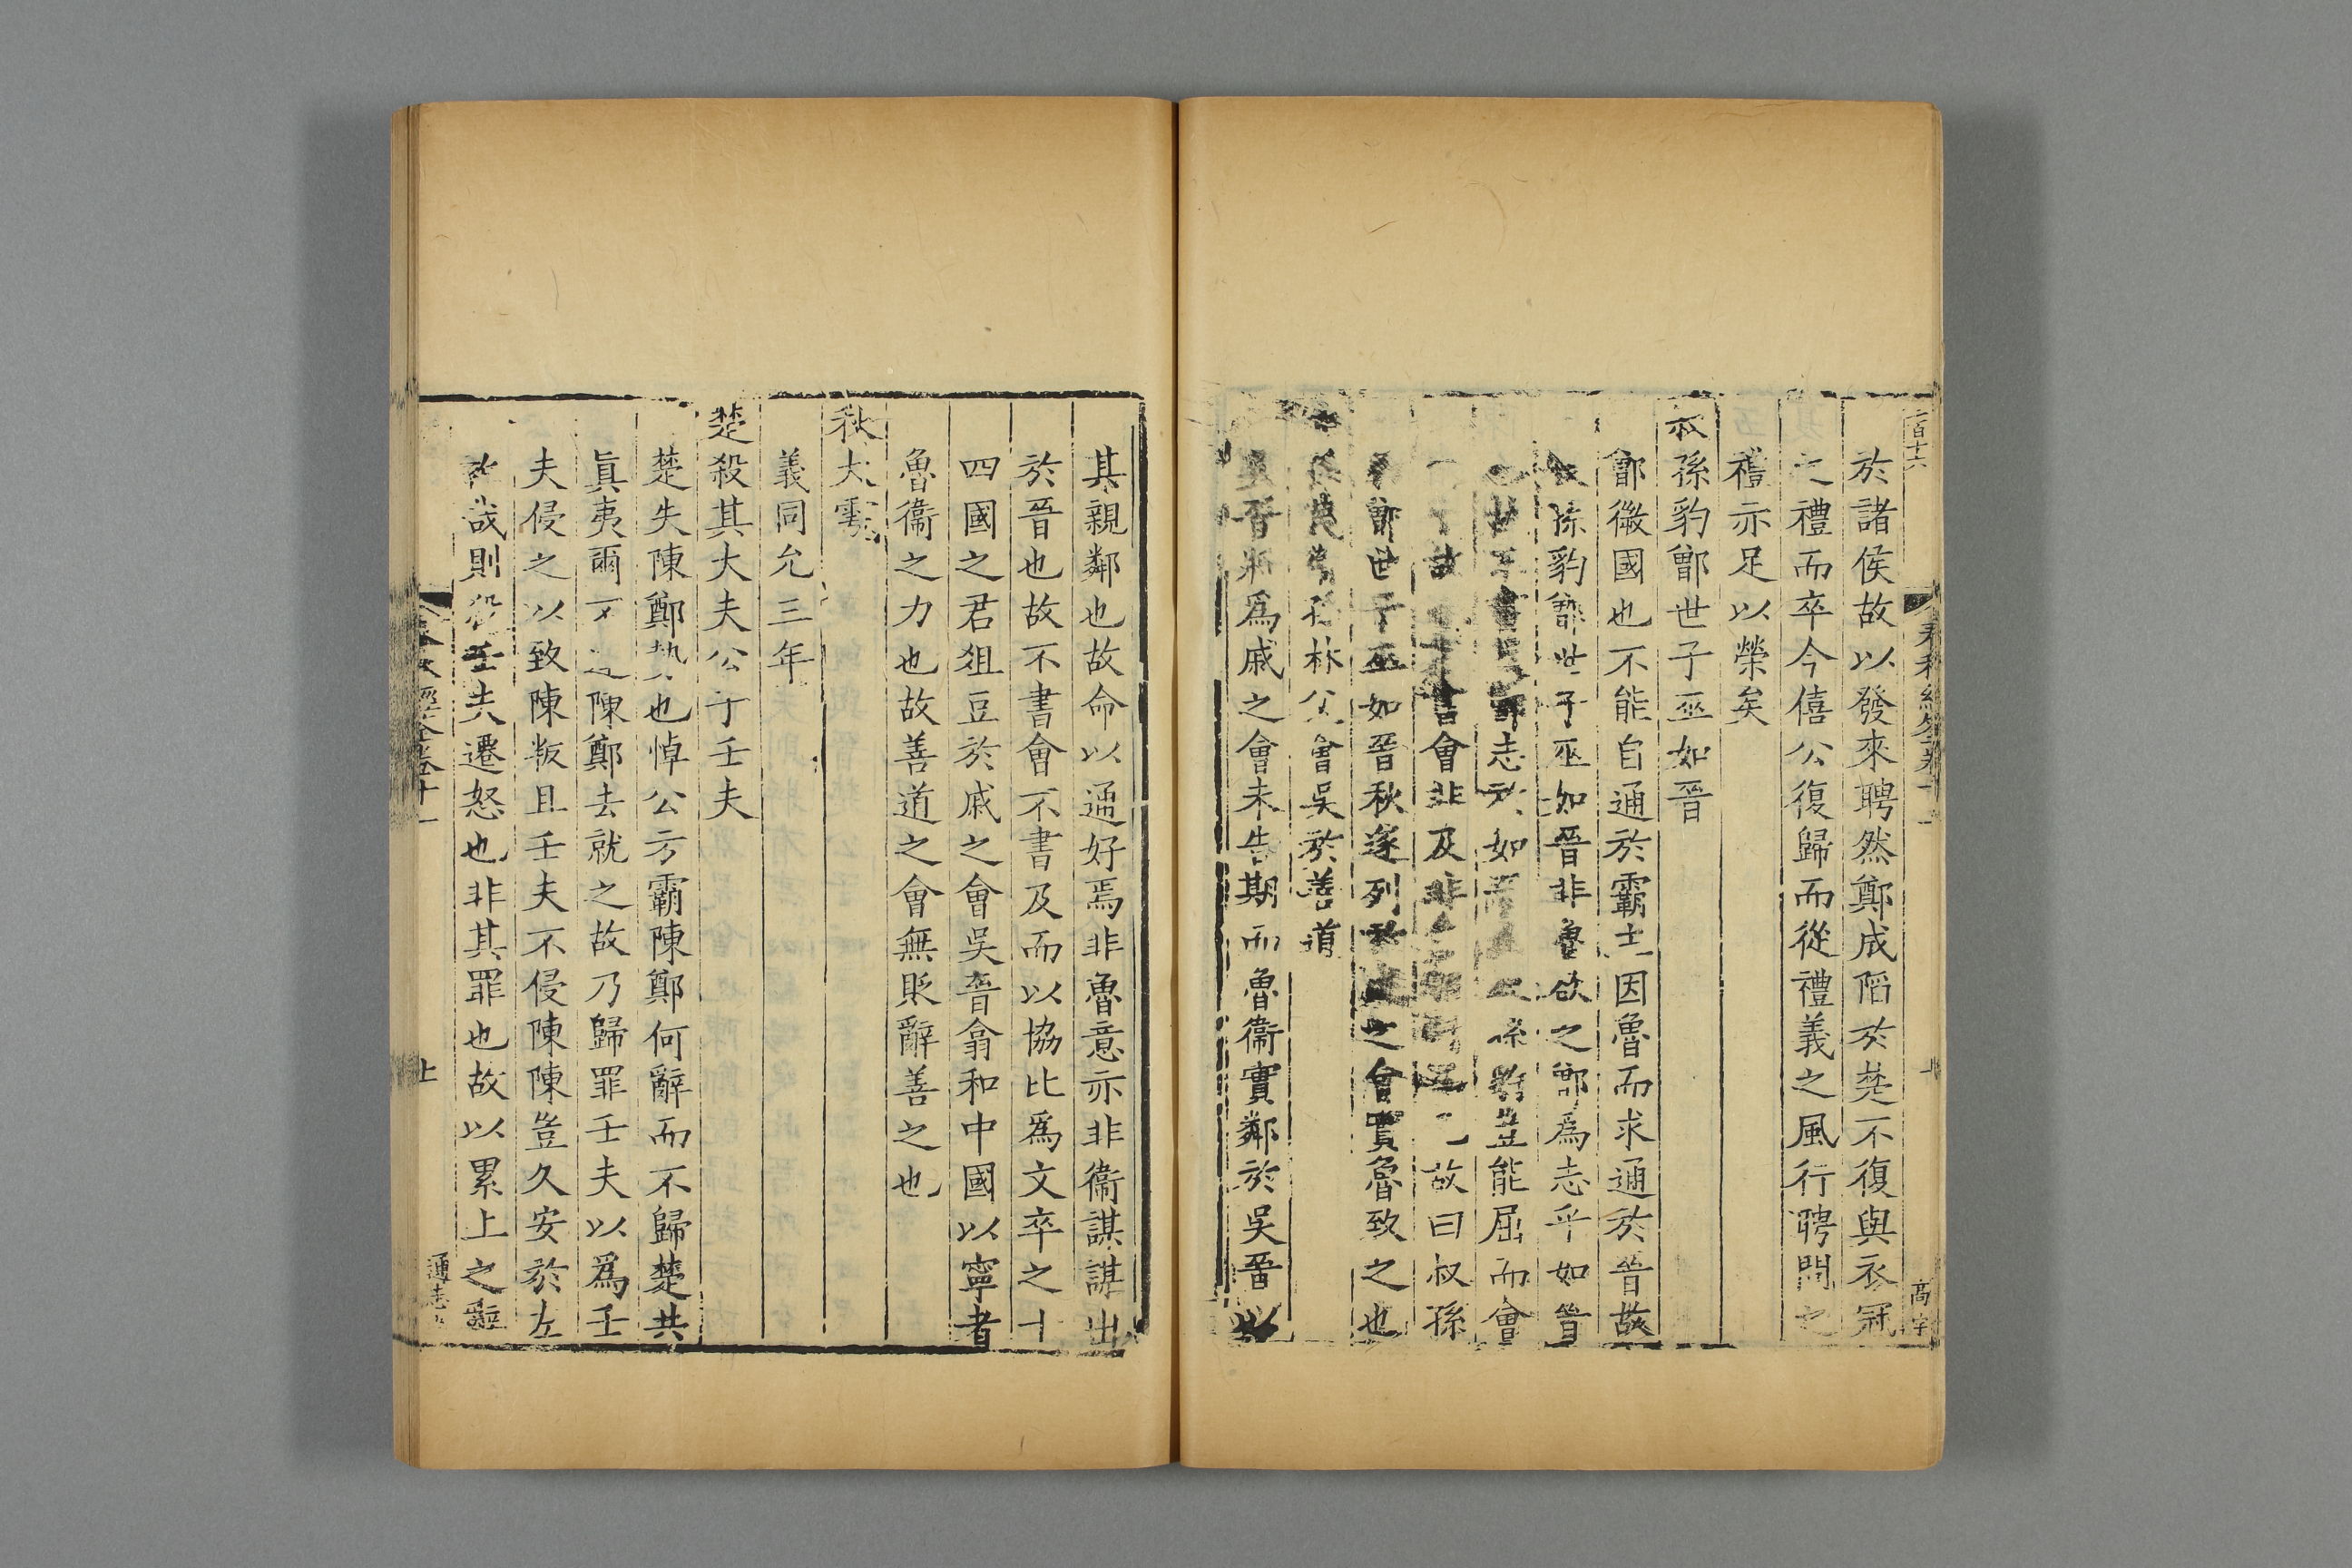 二百十六
高字
於諸侯故以發來聘然鄭成陷於楚不復與衣冠
之禮而卒今僖公復歸而從禮義之風行聘問之
禮亦足以榮矣
叔孫豹鄫世子巫如晉
鄫微國也不能自通於霸主因魯而求通於晉故
叔孫豹鄫世子巫如晉非魯欲之鄫為志乎如晉
世子書 鄫志於如 孫豹豈能屈而會
故 書會非及非 故曰叔孫
鄫世子巫如晉秋遂列於 之會實魯致之也
孫林父會吳於善道
吳晉將為戚之會未告期而魯衞實鄰於吳晉以
其親鄰也故命以通好焉非魯意亦非衞謀謀出
於晉也故不書會不書及而以協比為文卒之十
四國之君俎豆於戚之會吳晉翕和中國以寧者
魯衞之力也故善道之會無貶辭善之也
秋大雩
義同允三年
楚殺其大夫公子壬夫
楚失陳鄭勢也悼公方霸陳鄭何辭而不歸楚共
眞夷爾不 之陳鄭去就之故乃歸罪壬夫以為壬
夫侵之以致陳叛且壬夫不侵陳陳豈久安於左
衽哉則殺壬夫遷怒也非其罪也故以累上之辭